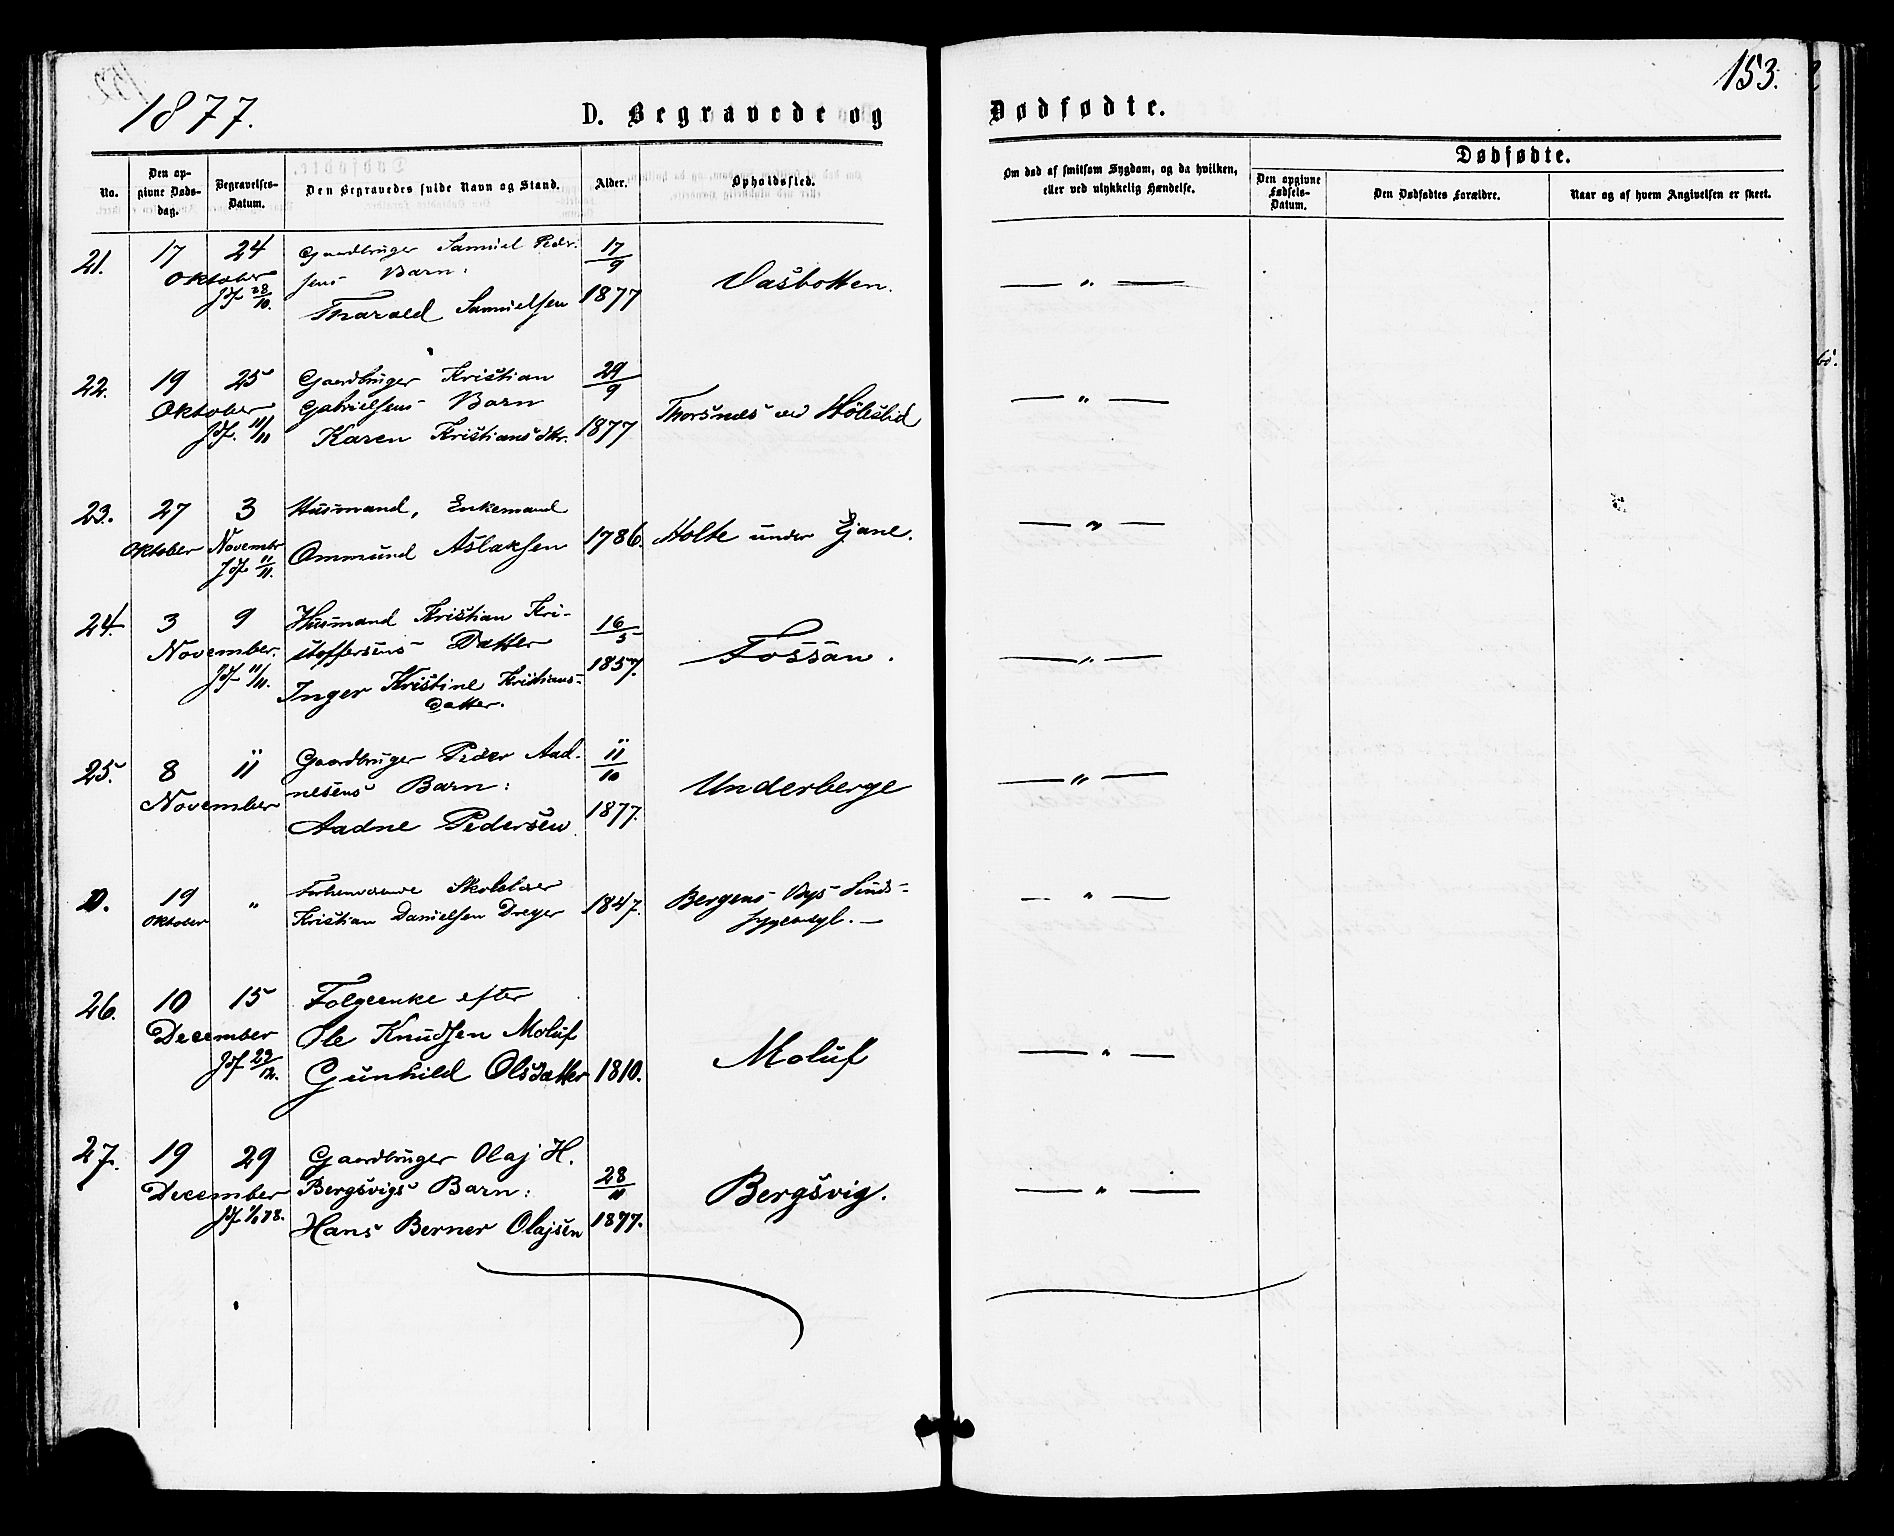 153.
1877.
D. Begravede og Dødfødte.
No.
Den opgivne Dødsdag.
Begravelses-Datum.
Den Begravedes fulde Navn og Stand.
Alder.
Opholdssted.
Om død af smitsom Sygdom, og da hvilken, eller ved ulykkelig Hændelse.
Dødfødte.
Den opgivne Fødsels-Datum.
Den Dødfødtes Forældre.
Naar og af hvem Angivelsen er skeet.
21. 17 24 Gaardbruger Samuel Peder- 17/9
Oktober sens Barn: Vasbotten. — " —
Jdf 28/10. Tharald Samuelsen 1877
22. 19 25 Gaardbruger Kristian 29/9
Oktober Gabrielsens Barn Thorsnæs ved Høleslid — " —
Jdf. 11/11 Karen Kristiansdtr. 1877
23. 27 3 Husmand, Enkemand
Oktober Novembr Ommund Aslaksen 1786. Holte under Ejane. — " —
Jdf 11/11.
24. 3 9 Husmand Kristian Kri- 16/5
November. stoffersens Datter Fossan. — " —
Jdf 11/11. Inger Kristine Kristians- 1857.
datter.
25. 8 11 Gaardbruger Peder Aad- 11/10
November nesens Barn: Underberge — " —
Aadne Pedersen 1877.
19 " Forhenværende Skolelærer Bergens Bys Sinds-
Oktober Kristian Danielsen Dreyer 1847. sygeasyl. — — " —
26. 10 15 Folgeenke efter
December Ole Knudsen Moluf Moluf — " —
Jdf 29/12. Gunhild Olsdatter 1810.
27. 19 29 Gaardbruger Olaj H. 28/11
December Bergsvigs Barn: Bergsvig. — " —
Jdf 1/1 78. Hans Berner Olajsen 1877.